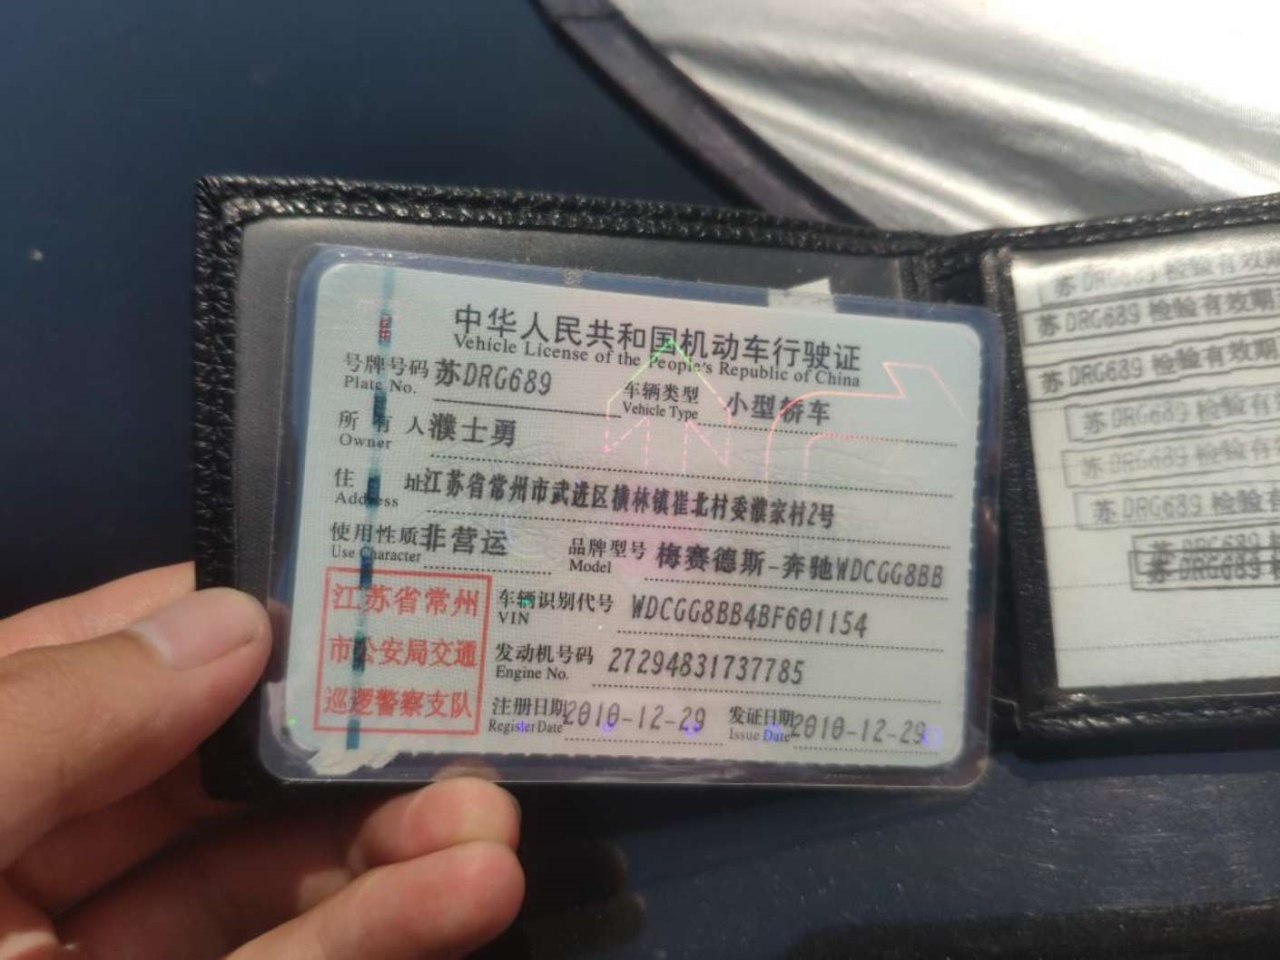 中华人民共和国机动车行驶证
Vehicle License of the People's Republic of China
号牌号码 苏DRG689 车辆类型 小型轿车
Plate No. Vehicle Type
所有人 濮士勇
Owner
住址 江苏省常州市武进区横林镇崔北村委濮家村2号
Address
使用性质 非营运 品牌型号 梅赛德斯-奔驰WDCGG8BB
Use Character Model
江苏省常州
市公安局交通
巡逻警察支队
车辆识别代号 WDCGG8BB4BF601154
VIN
发动机号码 27294831737785
Engine No.
注册日期 2010-12-29 发证日期 2010-12-29
Register Date Issue Date
苏DRG689 检验有效期
苏DRG689 检验有效期
苏DRG689 检验有效期
苏DRG689 检验有
苏DRG689 检验有
苏DRG689 检验有
苏DRG689 检